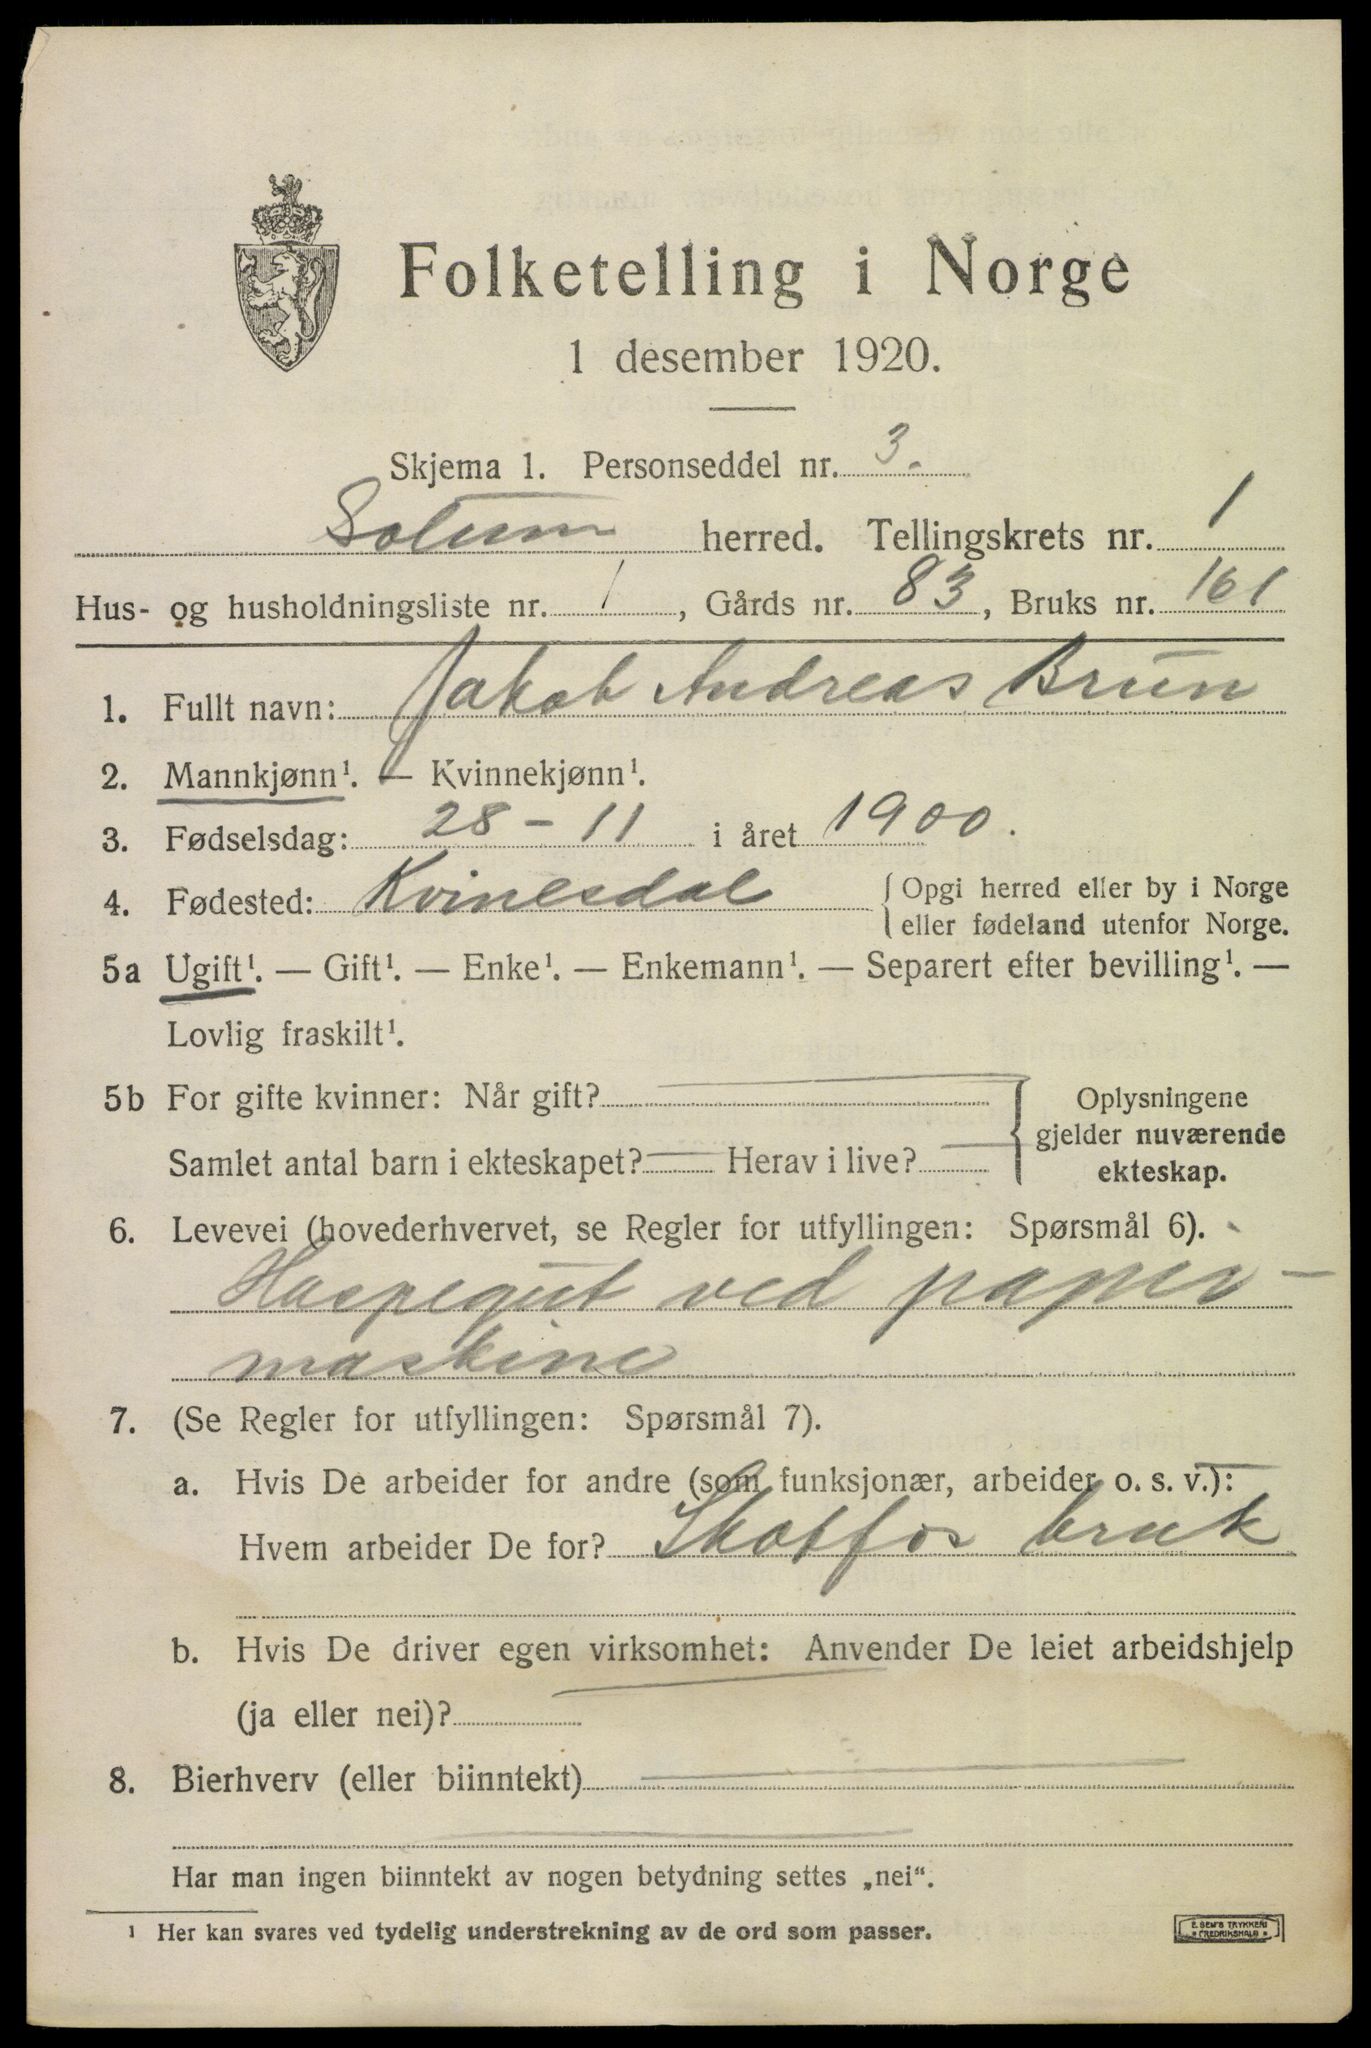 Folketelling i Norge
1 desember 1920.
Skjema 1. Personseddel nr. 3.
Solum herred. Tellingskrets nr. 1
Hus- og husholdningsliste nr. 1, Gårds nr. 83, Bruks nr. 161
1. Fullt navn: Jakob Andreas Brun
2. Mannkjønn¹. — Kvinnekjønn¹.
3. Fødselsdag: 28 - 11 i året 1900.
4. Fødested: Kvinesdal { Opgi herred eller by i Norge
eller fødeland utenfor Norge.
5a Ugift¹. — Gift¹. — Enke¹. — Enkemann¹. — Separert efter bevilling¹. —
Lovlig fraskilt¹.
5b For gifte kvinner: Når gift? Oplysningene
gjelder nuværende
Samlet antal barn i ekteskapet? Herav i live? ekteskap.
6. Levevei (hovederhvervet, se Regler for utfyllingen: Spørsmål 6).
Haspegut ved papir-
maskine
7. (Se Regler for utfyllingen: Spørsmål 7).
a. Hvis De arbeider for andre (som funksjonær, arbeider o. s. v.):
Hvem arbeider De for? Skotfos bruk
b. Hvis De driver egen virksomhet: Anvender De leiet arbeidshjelp
(ja eller nei)?
8. Bierhverv (eller biinntekt)
Har man ingen biinntekt av nogen betydning settes „nei“.
¹ Her kan svares ved tydelig understrekning av de ord som passer.
E. SEM'S TRYKKERI
FREDRIKSHALD